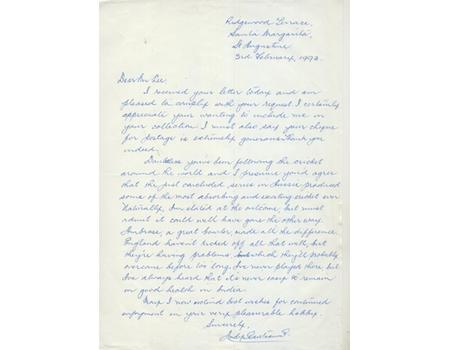 Ridgewood Terrace,
Santa Margarita,
St Augustine
3rd February, 1993.
Dear Mr Lee,
I received your letter today and am
pleased to comply with your request. I certainly
appreciate your wanting to include me in
your collection. I must also say your cheque
for postage is extremely generous. Thank you
indeed.
Doubtless you've been following the cricket
around the world and I presume you'd agree
that the just concluded series in Aussie produced
some of the most absorbing and exciting cricket ever
Naturally, I'm elated at the outcome, but must
admit it could well have gone the other way.
Ambrose, a great bowler, made all the difference.
England haven't kicked off all that well, but
they're having problems which they'll probably
overcome before too long. I've never played there but
I've always heard that it's never easy to remain
in good health in India.
May I now extend best wishes for continued
enjoyment in your very pleasurable hobby.
Sincerely,